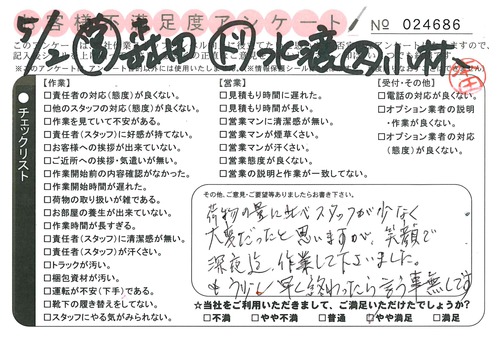 お客様不満足度アンケート
№ 024686
5/3
森田
水渡
小林
森田
チェックリスト
【作業】
□責任者の対応(態度)が良くない。
□他のスタッフの対応(態度)が良くない。
□作業を見ていて不安がある。
□責任者(スタッフ)に好感が持てない。
□お客様への挨拶が出来ていない。
□ご近所への挨拶・気遣いが無い。
□作業開始前の内容確認がなかった。
□作業開始時間が遅れた。
□荷物の取り扱いが雑である。
□お部屋の養生が出来ていない。
□作業時間が長すぎる。
□責任者(スタッフ)に清潔感が無い。
□責任者(スタッフ)が汗くさい。
□トラックが汚い。
□梱包資材が汚い。
□運転が不安(下手)である。
□靴下の履き替えをしてない。
□スタッフにやる気がみられない。
【営業】
□見積もり時間に遅れた。
□見積もり時間が長い。
□営業マンに清潔感が無い。
□営業マンが煙草くさい。
□営業マンが汗くさい。
□営業態度が良くない。
□営業の説明と作業が一致してない。
【受付・その他】
□電話の対応が良くない。
□オプション業者の説明
・作業が良くない。
□オプション業者の対応
(態度)が良くない。
その他、ご意見・ご要望等ありましたらお書き下さい。
荷物の量に比べスタッフが少なく
大変だったと思いますが、笑顔で
深夜迄、作業して下さいました。
もう少し早く終わったら言う事無しです
☆当社をご利用いただきまして、ご満足いただけたでしょうか?
□不満 □やや不満 □普通 □やや満足 □満足